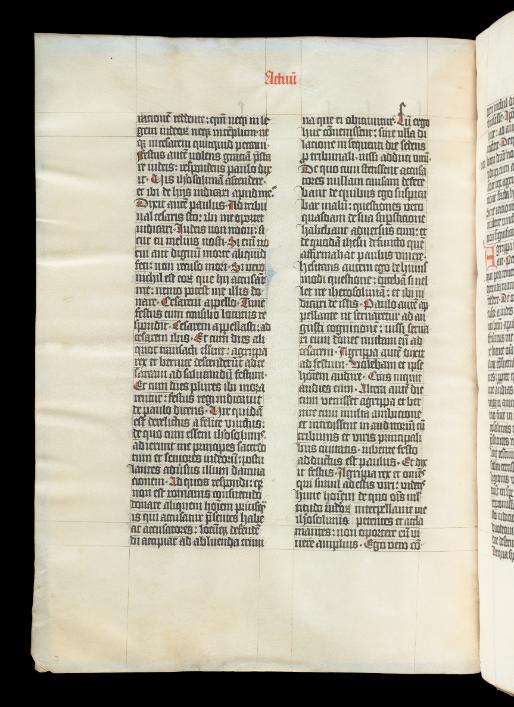 Actuū
rationē reddente: qm̄ neqꝫ in le
gem iudeoꝝ neqꝫ in templum ne
qꝫ in cesarem quicquid peccaui.
Festus autē volens gratiā p̄sta
re iudeis: respondens paulo dix
it. Vis iherosolimā ascendere:
et ibi de hijs iudicari apud me?
Dixit autē paulus. Ad tribu
nal cesaris sto: ibi me oportet
iudicari. Iudeis non nocui: si
cut tu melius nosti. Si enī no
cui aut dignū morte aliquid
feci: non recuso mori. Si vero
nichil est eoꝝ que hij accusāt
me: nemo potest me illis do
nare. Cesarem appello. Tunc
festus cum consilio locutus re
spondit. Cesarem appellasti: ad
cesarem ibis. Et cum dies ali
quot transacti essent: agrippa
rex et bernice descenderūt ad ce
saream ad salutandū festum.
Et cum dies plures ibi mora
rentur: festus regi indicauit
de paulo dicens. Vir quidā
est derelictus a felice vinctus:
de quo cum essem iherosolimis
adierunt me principes sacerdo
tum et seniores iudeoꝝ: postu
lantes aduersus illum damna
tionem. Ad quos respondi: qꝫ
non est romanis consuetudo
donare aliquem hoīem priusqꝫ
is qui accusatur p̄sentes habe
at accusatores: locūqꝫ defende
di accipiat ad abluenda crimi
na que ei obiciuntur. Cū ergo
huc conuenissent: sine vlla di
latione sequenti die sedens
pro tribunali: iussi adduci virū.
De quo cum stetissent accusa
tores nullam causam defere
bant de quibus ego suspica
bar malū: questiones vero
quasdam de sua supsticione
habebant aduersus eum: et
de quodā ihesu defuncto quē
affirmabat paulus viuere.
Hesitans autem ego de huius
modi questione: dicebā si uel
let ire iherosolimā: et ibi iu
dicari de istis. Paulo autē ap
pellante vt seruaretur ad au
gusti cognitionē: iussi serua
ri eum donec mittam eū ad
cesarem. Agrippa autē dixit
ad festum. Volebam et ipse
hoīem audire. Cras inquit
audies eum. Altera autē die
cum venisset agrippa et ber
nice cum multa ambitione
et introissent in auditoriū cū
tribunis et viris principali
bus ciuitatis: iubente festo
adductus est paulus. Et dix
it festus. Agrippa rex et omēs
qui simul adestis viri: videtis
hunc hoīem de quo oīs mul
titudo iudeoꝝ interpellauit me
iherosolimis petentes et accla
mantes: non oportere eū vi
uere amplius. Ego vero cō